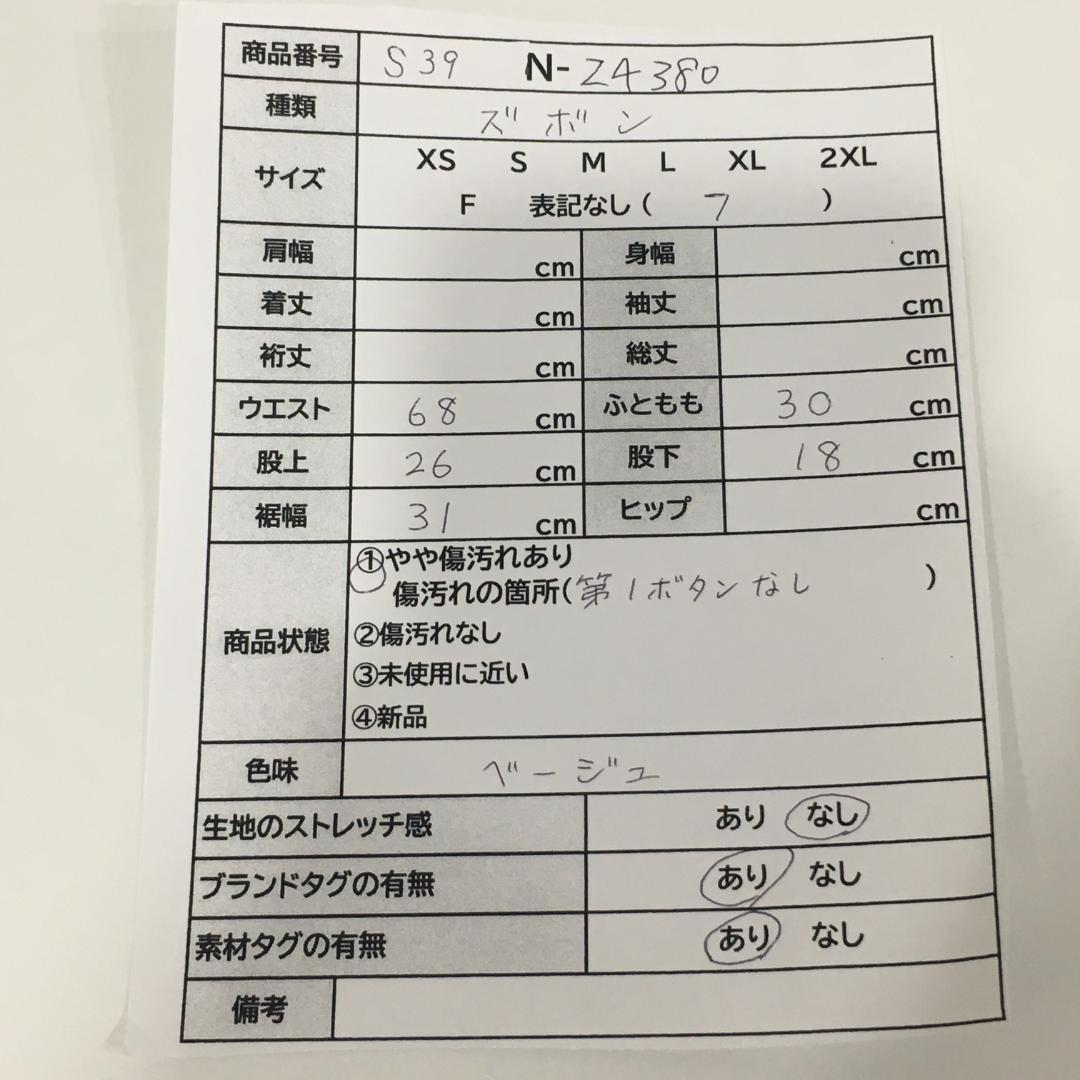 商品番号 S39 N-Z4380
種類 ズボン
サイズ XS S M L XL 2XL
F 表記なし ( 7 )
肩幅 cm 身幅 cm
着丈 cm 袖丈 cm
裄丈 cm 総丈 cm
ウエスト 68 cm ふともも 30 cm
股上 26 cm 股下 18 cm
裾幅 31 cm ヒップ cm
商品状態 ①やや傷汚れあり
傷汚れの箇所(第1ボタンなし )
②傷汚れなし
③未使用に近い
④新品
色味 ベージュ
生地のストレッチ感 あり なし
ブランドタグの有無 あり なし
素材タグの有無 あり なし
備考